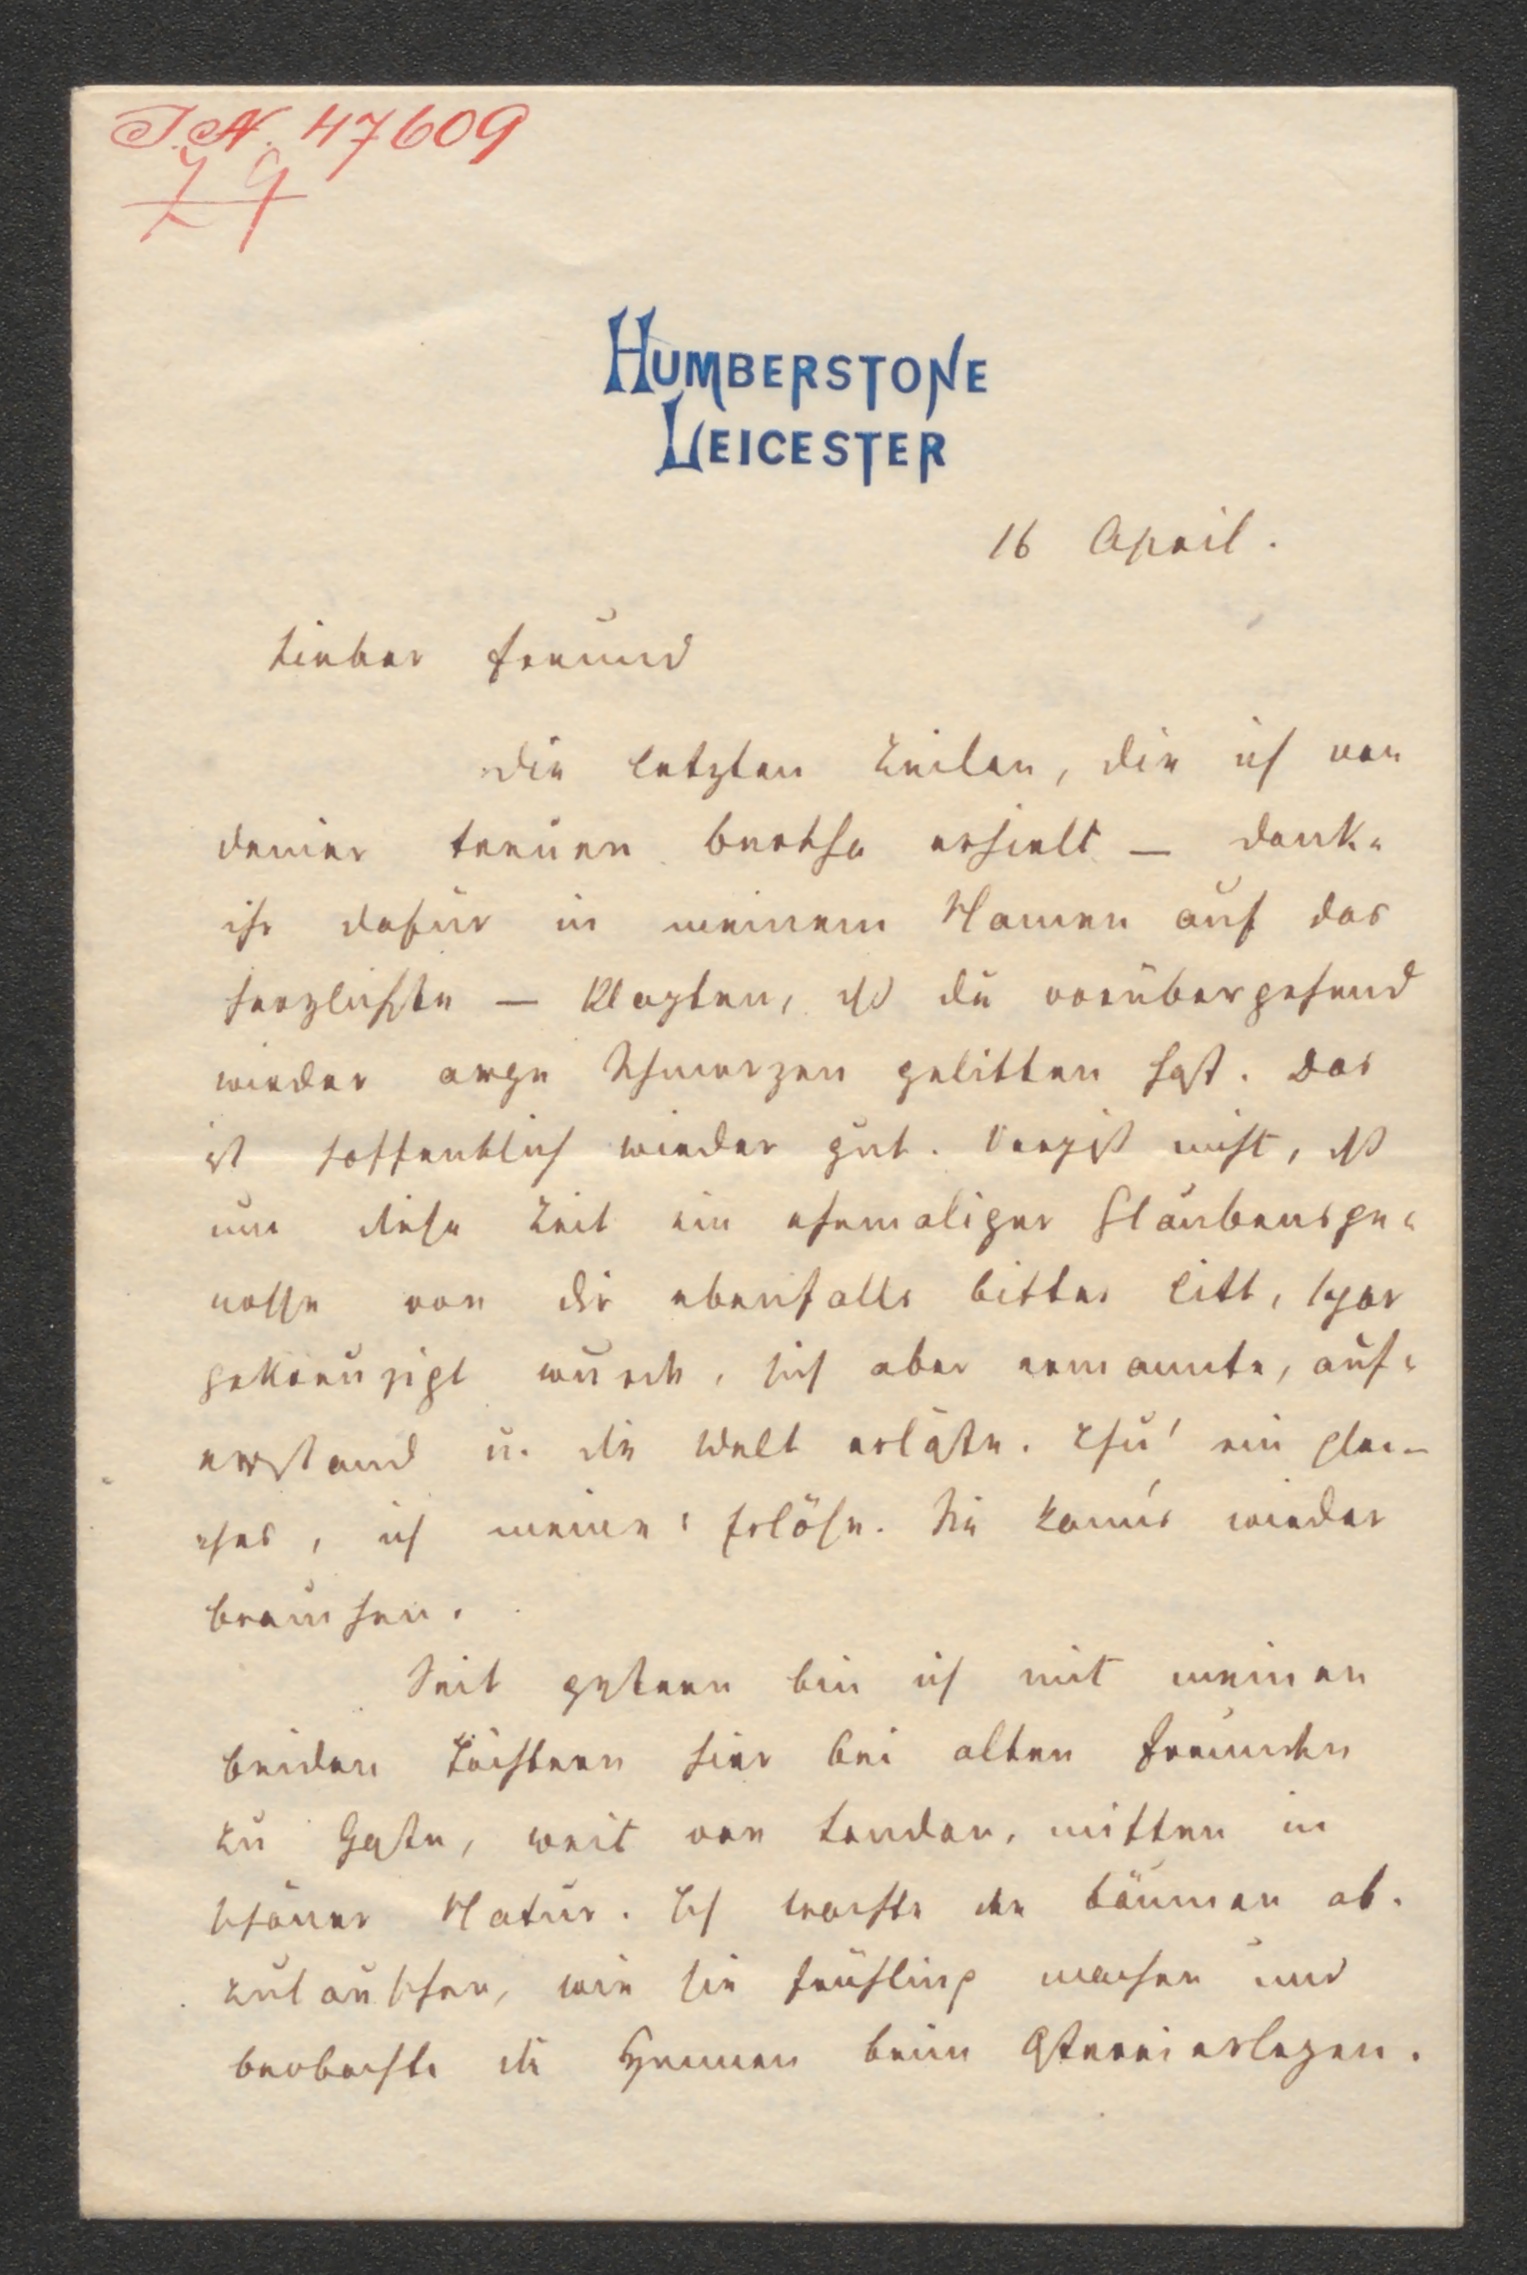 I.N. 47609
79
HUMBERSTONE
LEICESTER
16 April.
Lieber Freund
Die letzten Zeilen, die ich von
deiner treuen Bertha erhielt — dank-
ihr dafür in meinem Namen auf das
herzlichste — klagten, dß du vorübergehend
wieder arge Schmerzen gelitten hast. Das
ist hoffentlich wieder gut. Vergiß nicht, dß
um diese Zeit ein ehemaliger Glaubensge-
nosse von dir ebenfalls bitter litt, sogar
gekreuzigt wurde, sich aber ermannte, auf-
erstand u. die Welt erlöste. Thu' ein glei-
ches, ich meine: erlöse. Sie kann's wieder
brauchen.
Seit gestern bin ich mit meinen
beiden Töchtern hier bei alten Freunden
zu Gaste, weit von London, mitten in
schöner Natur. Ich trachte den Bäumen ab-
zulauschen, wie sie Frühling machen und
beobachte die Hennen beim Ostereierlegen.